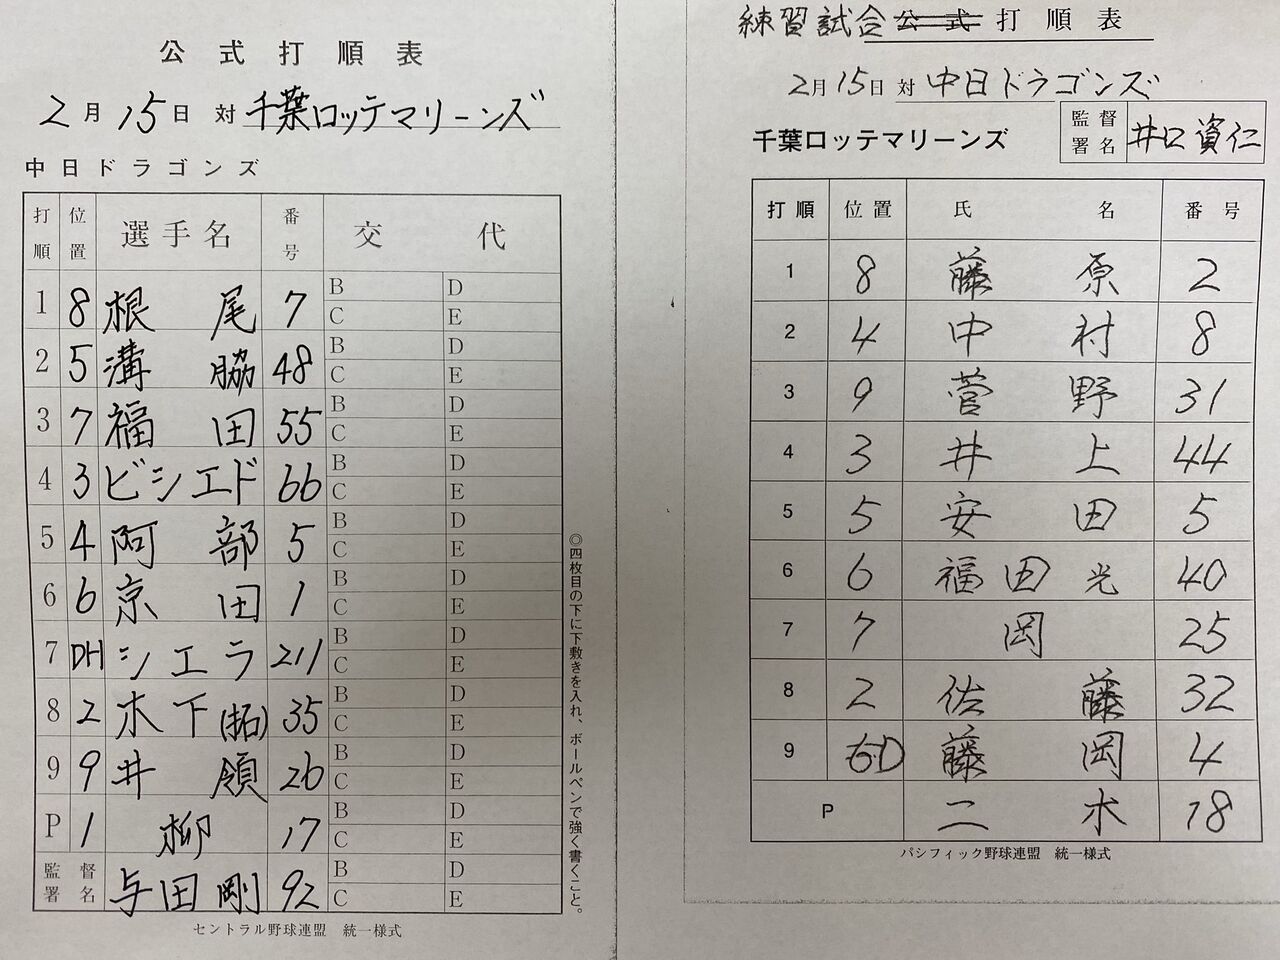 公式打順表
2月15日 対 千葉ロッテマリーンズ
中日ドラゴンズ
打順 位置 選手名 番号 交代
1 8 根尾 7 B D C E
2 5 溝脇 48 B D C E
3 7 福田 55 B D C E
4 3 ビシエド 66 B D C E
5 4 阿部 5 B D C E
6 6 京田 1 B D C E
7 DH シエラ 211 B D C E
8 2 木下(拓) 35 B D C E
9 9 井領 26 B D C E
P 1 柳 17 B D C E
監督署名 与田剛 92 B D C E
セントラル野球連盟 統一様式
◎四枚目の下に下敷きを入れ、ボールペンで強く書くこと。
練習試合 公式打順表
2月15日 対 中日ドラゴンズ
千葉ロッテマリーンズ 監督署名 井口資仁
打順 位置 氏名 番号
1 8 藤原 2
2 4 中村 8
3 9 菅野 31
4 3 井上 44
5 5 安田 5
6 6 福田光 40
7 7 岡 25
8 2 佐藤 32
9 D 藤岡 4
P 二木 18
パシフィック野球連盟 統一様式